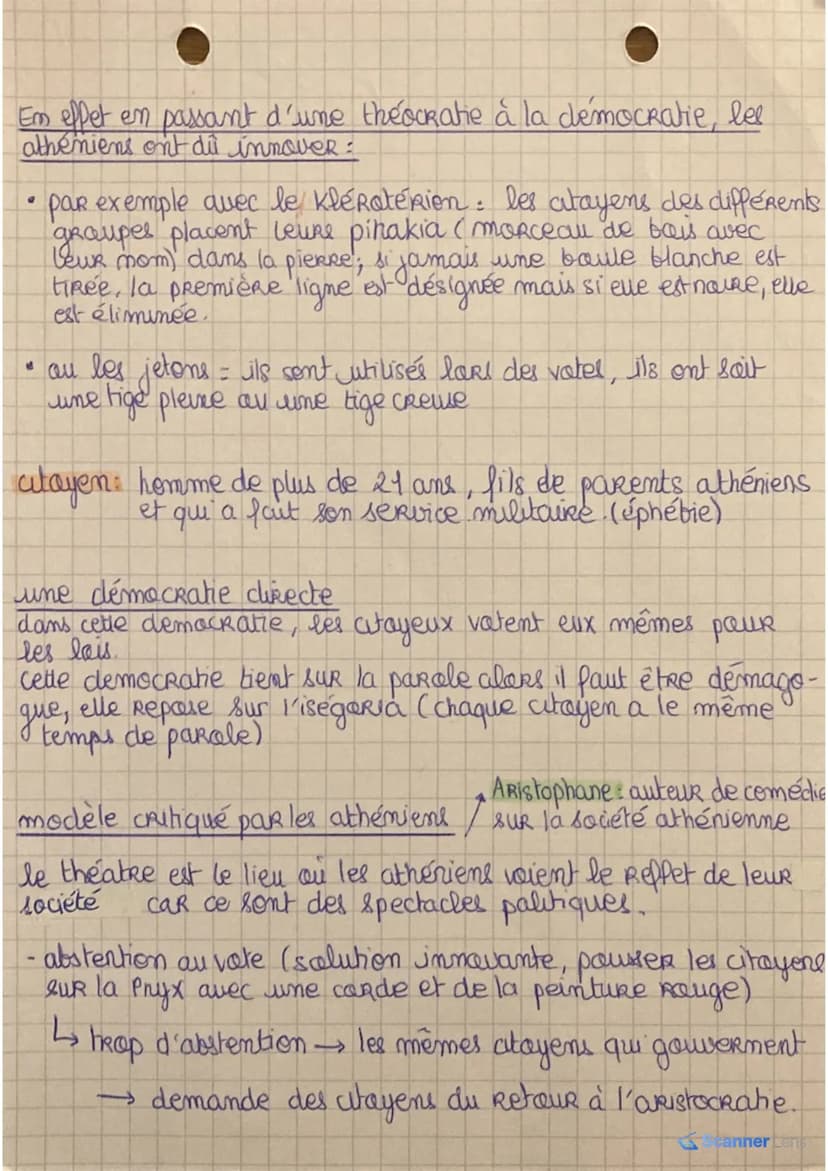 En effet en passant d'une théocratie à la démocratie, les
athéniens ont dû innover :
• par exemple avec le Klérotérion : les citoyens des différents
groupes placent leurs pinakia (morceau de bois avec
leur nom) dans la pierre ; si jamais une boule blanche est
tirée, la première ligne est désignée mais si elle est noire, elle
est éliminée.
• ou les jetons = ils sont utilisés lors des votes, ils ont soit
une tige pleine ou une tige creuse
citoyen : homme de plus de 21 ans, fils de parents athéniens
et qui a fait son service militaire. (éphébie)
une démocratie directe
dans cette democratie, les citoyeux votent eux mêmes pour
les lois.
cette democratie tient sur la parole alors il faut être démago-
gue, elle repose sur l'iségoria (chaque citoyen a le même
temps de parole)
Aristophane : auteur de comédie
modèle critiqué par les athéniens / sur la société athénienne
le théatre est le lieu où les athéniens voient le reflet de leur
société car ce sont des spectacles politiques.
- abstention au vote (solution innovante, pousser les citoyens
sur la Pnyx avec une corde et de la peinture rouge)
↳ trop d'abstention → les mêmes citoyens qui gouvernent
→ demande des citoyens du retour à l'aristocratie.
Scanner Lens